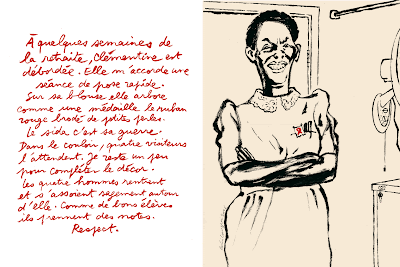 À quelques semaines de
la retraite, Clémentine est
débordée. Elle m'accorde une
séance de pose rapide.
Sur sa blouse elle arbore
comme une médaille le ruban
rouge brodé de petites perles.
Le sida c'est sa guerre.
Dans le couloir, quatre visiteurs
l'attendent. Je reste un peu
pour compléter le décor.
Les quatre hommes rentrent
et s'assoient sagement autour
d'elle. Comme de bons élèves
ils prennent des notes.
Respect.